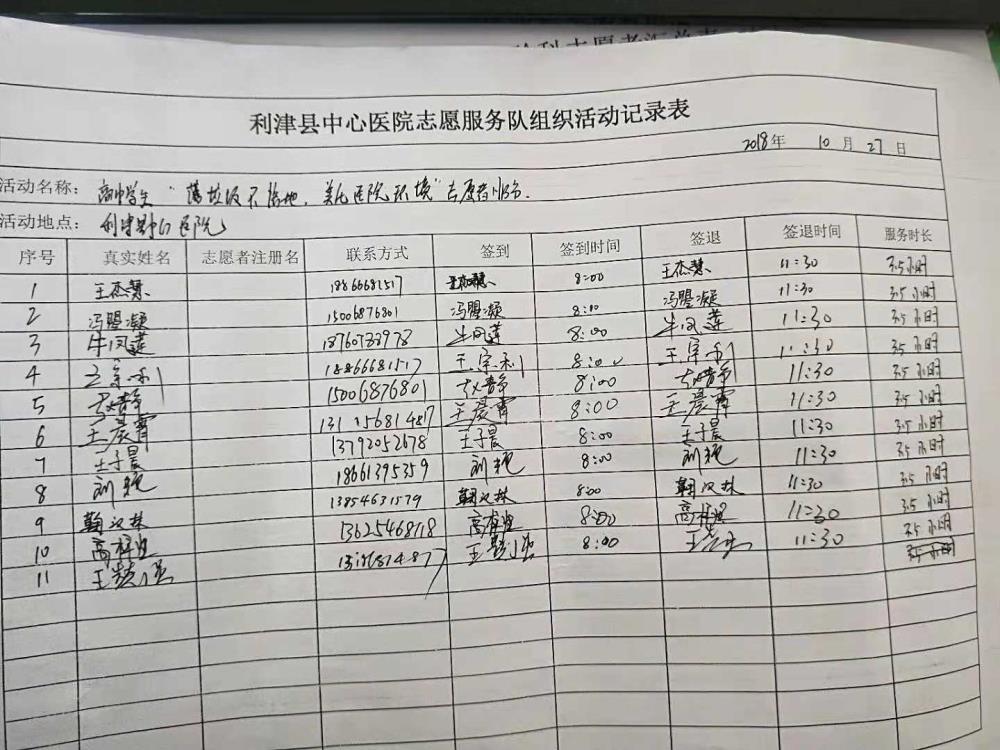 利津县中心医院志愿服务队组织活动记录表
2018年 10月 27日
活动名称： 高中学生"落垃圾不落地，美化医院环境"志愿者服务.
活动地点： 利津县中心医院
序号 真实姓名 志愿者注册名 联系方式 签到 签到时间 签退 签退时间 服务时长
1 王杰慧 18866681517 王杰慧 8:00 王杰慧 11:30 3.5小时
2 冯盟凝 15006876801 冯盟凝 8:00 冯盟凝 11:30 3.5小时
3 牛凤莲 18760733978 牛凤莲 8:00 牛凤莲 11:30 3.5小时
4 王宗利 18866681517 王宗利 8:00 王宗利 11:30 3.5小时
5 15006876801 8:00 11:30 3.5小时
6 王晨霄 王晨霄 8:00 王晨霄 11:30 3.5小时
7 王子晨 13792052678 王子晨 8:00 王子晨 11:30 3.5小时
8 刘艳 18661395359 刘艳 8:00 刘艳 11:30 3.5小时
9 翰汉林 13854631579 翰汉林 8:00 翰汉林 11:30 3.5小时
10 13625468718 8:00 11:30 3.5小时
11 8:00 11:30 3.5小时